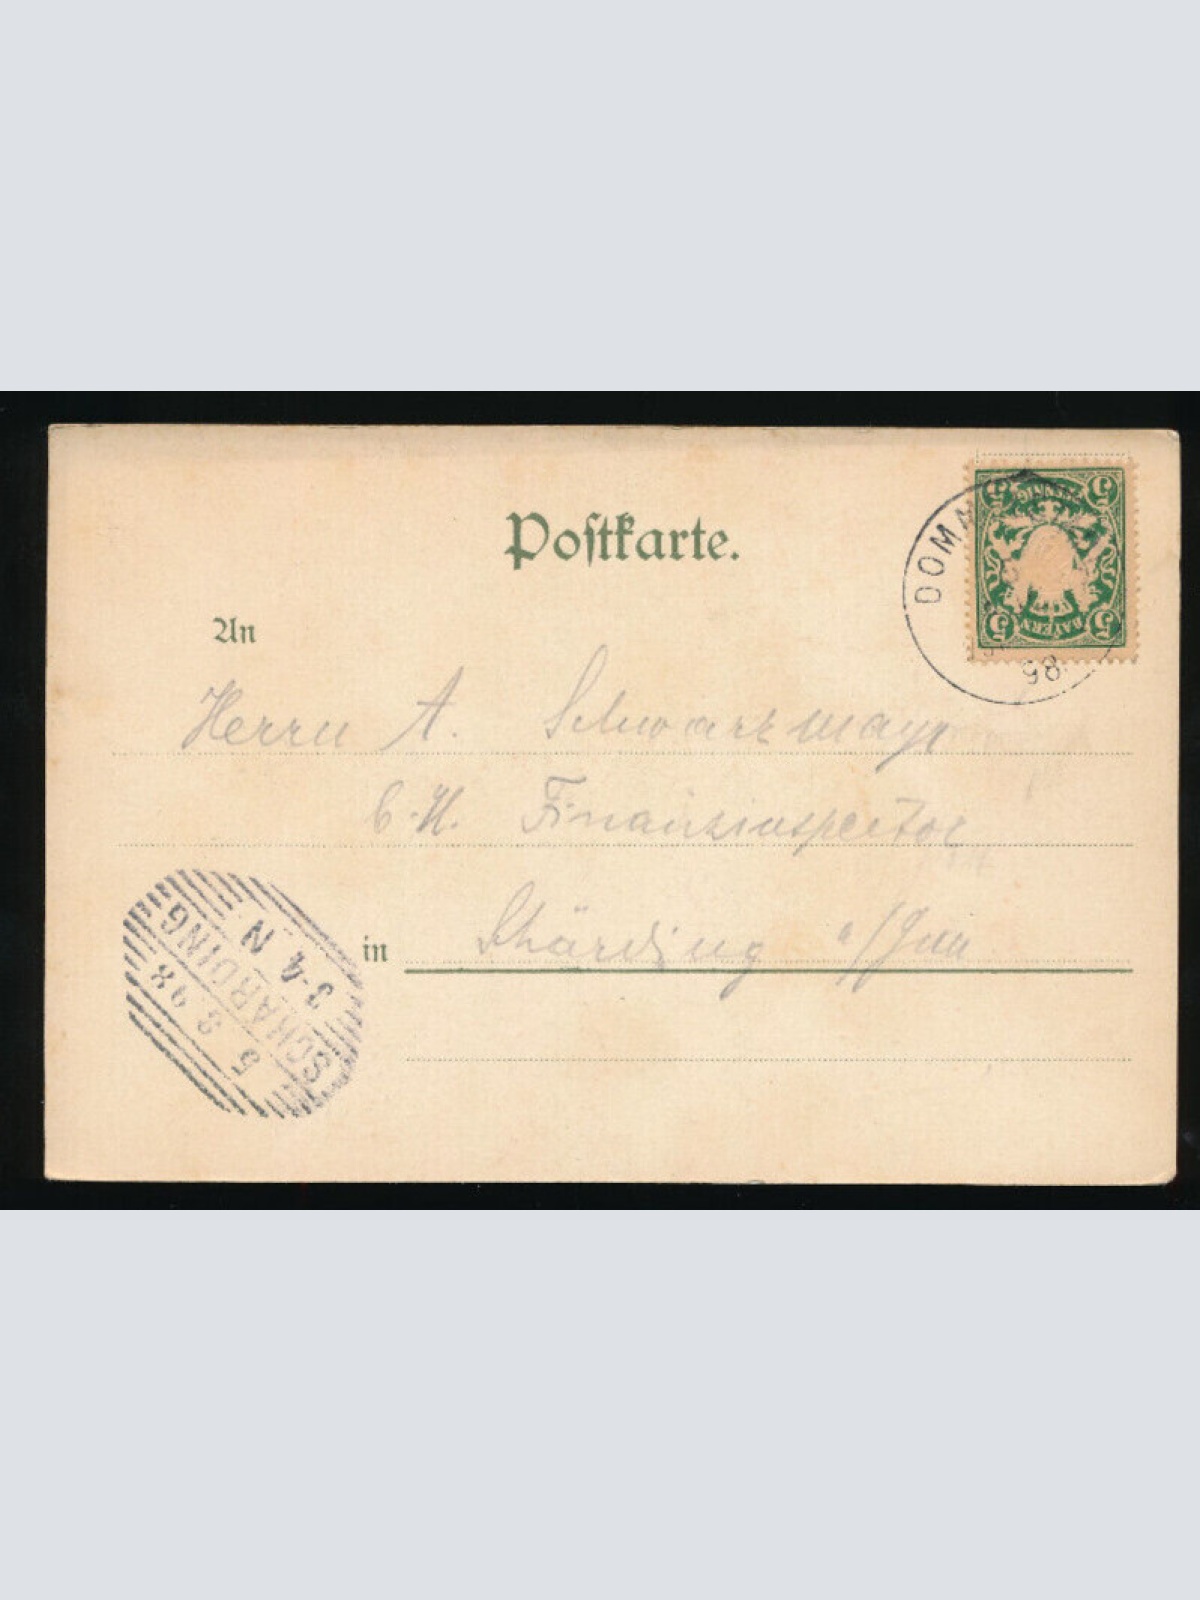 Postkarte.
5 PFENNIG 5
5 BAYERN 5
DOMA
98
An
Herrn A. Schwarzmayr
k. k. Finanzinspector
in Schärding a/Inn
SCHÄRDING
3-4 N
5 9 98